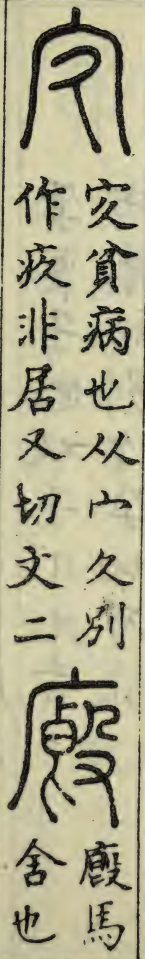 㝌
㝌貧病也从宀久別
作疚非居又切文二
廄
廄馬
舍也